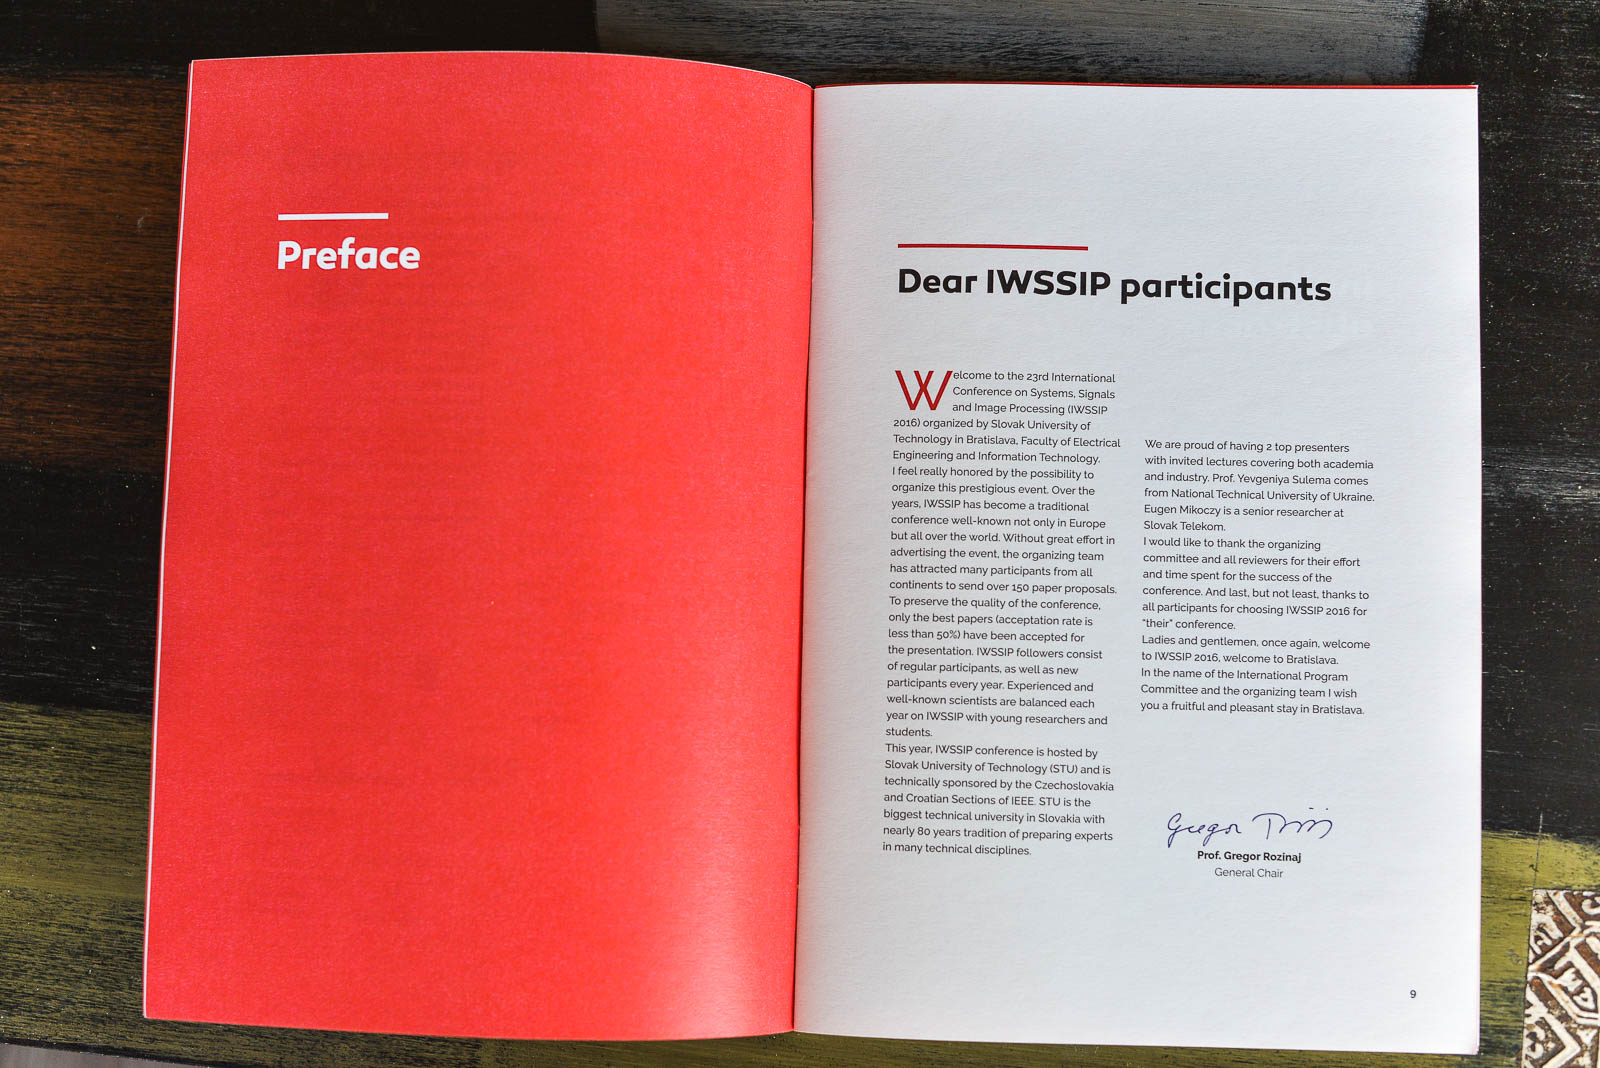 Preface
Dear IWSSIP participants
Welcome to the 23rd International
Conference on Systems, Signals
and Image Processing (IWSSIP
2016) organized by Slovak University of
Technology in Bratislava, Faculty of Electrical
Engineering and Information Technology.
I feel really honored by the possibility to
organize this prestigious event. Over the
years, IWSSIP has become a traditional
conference well-known not only in Europe
but all over the world. Without great effort in
advertising the event, the organizing team
has attracted many participants from all
continents to send over 150 paper proposals.
To preserve the quality of the conference,
only the best papers (acceptation rate is
less than 50%) have been accepted for
the presentation. IWSSIP followers consist
of regular participants, as well as new
participants every year. Experienced and
well-known scientists are balanced each
year on IWSSIP with young researchers and
students.
This year, IWSSIP conference is hosted by
Slovak University of Technology (STU) and is
technically sponsored by the Czechoslovakia
and Croatian Sections of IEEE. STU is the
biggest technical university in Slovakia with
nearly 80 years tradition of preparing experts
in many technical disciplines.
We are proud of having 2 top presenters
with invited lectures covering both academia
and industry. Prof. Yevgeniya Sulema comes
from National Technical University of Ukraine.
Eugen Mikoczy is a senior researcher at
Slovak Telekom.
I would like to thank the organizing
committee and all reviewers for their effort
and time spent for the success of the
conference. And last, but not least, thanks to
all participants for choosing IWSSIP 2016 for
"their" conference.
Ladies and gentlemen, once again, welcome
to IWSSIP 2016, welcome to Bratislava.
In the name of the International Program
Committee and the organizing team I wish
you a fruitful and pleasant stay in Bratislava.
Gregor
Prof. Gregor Rozinaj
General Chair
9